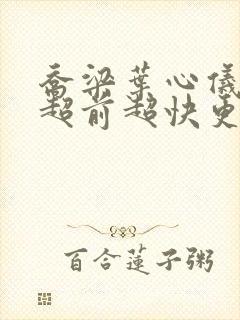 乔梁葉心儀
超前超快更
百合蓮子粥